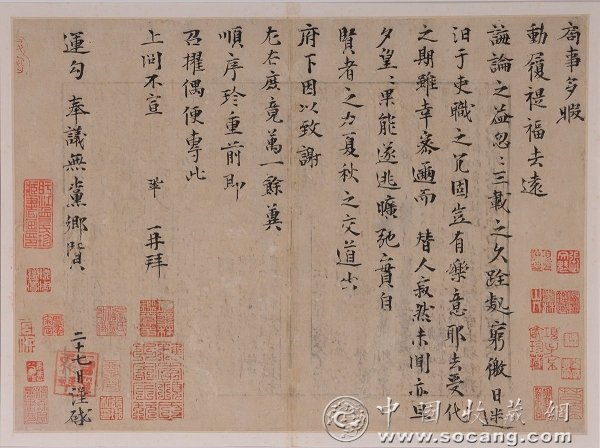 局事多暇
動履禔福去遠
誨論之益忽〻三載之久跧處窮徼日迷
汨于吏職之冗固豈有樂意耶去受代
之期雖幸密邇而 替人寂然未聞亦旦
夕望〻果能遂逃曠弛實自
賢者之力夏秋之交道出
府下因以致謝
左右庶竟萬一餘冀
順序珍重前即
召擢偶便專此
上問不宣 鞏 再拜
運勾 奉議無黨鄉賢
二十七日謹啟
中国收藏网
www.socang.com